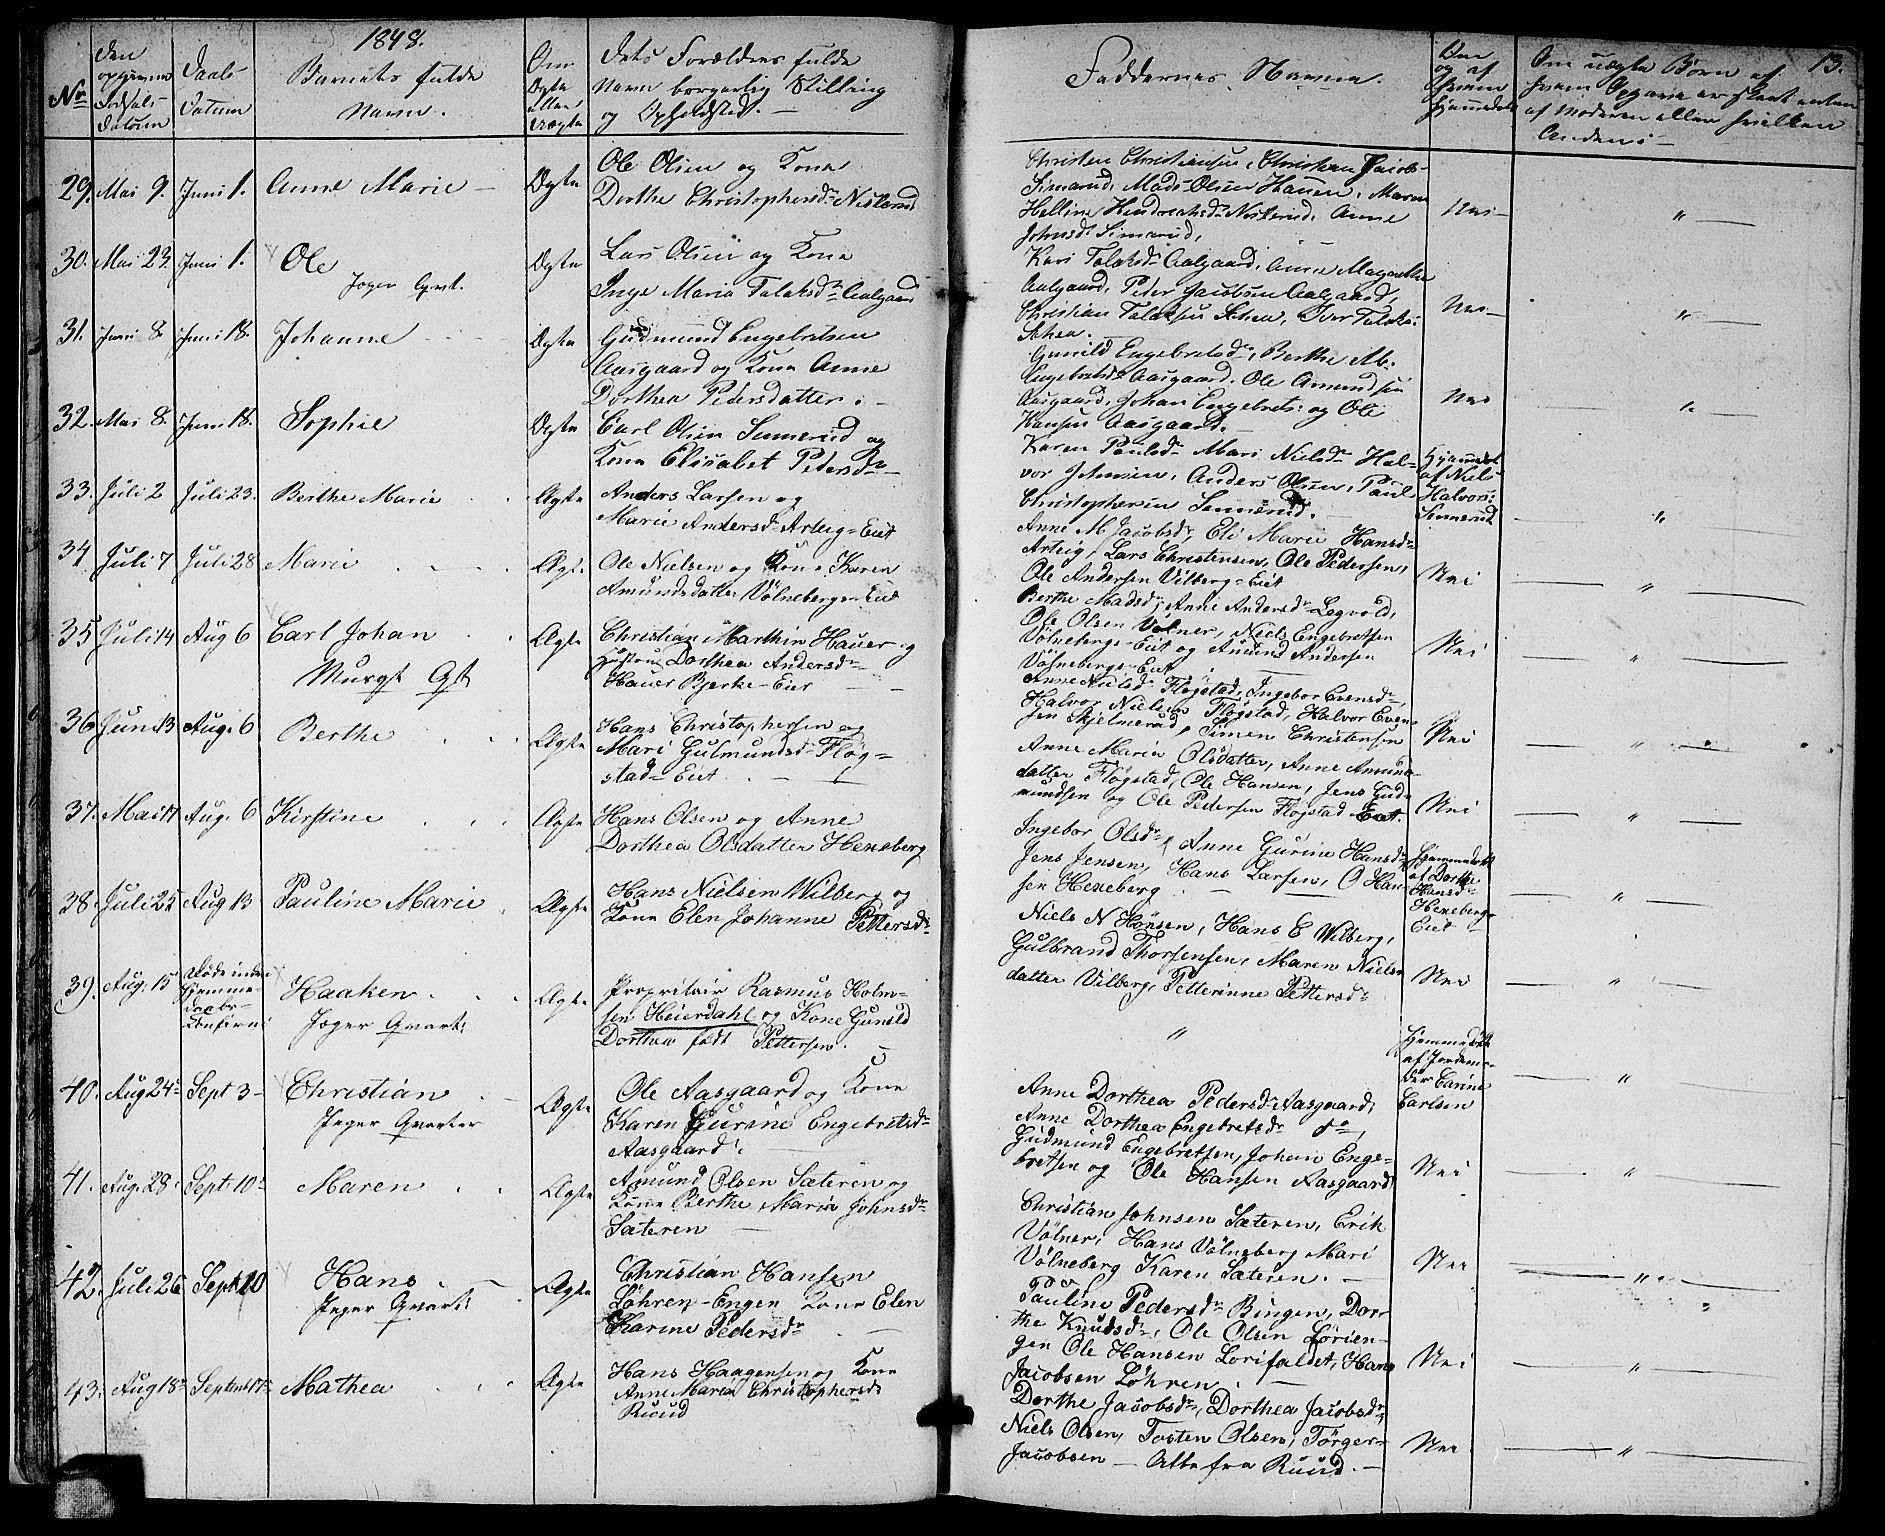 1848.
13.
No
Den
Fødsels
Datum
Daabs
Datum
Barnets fulde
Navn.
Om
Ægte
eller
uægte
Dets Forældres fulde
Navn borgerlig Stilling
og Opholdsted.
Faddernes Navne.
Om
og af
hvem
hjemmedøbt
Om uægte Børn af
hvem Opgave er skeet enten
af Moderen eller hvilken
Anden
29. Mai 9. Juni 1. Anne Marie Ægte
Ole Olsen og Kone
Dorthe Christophersdr Niskerud
Christen Christiansen, Christian Jacobs-
Simarud, Mads Olsen Hauen, Maren
Helline Hendrechsdr Niskerud, Anne
Johnsdr Simarud,
Nei
30. Mai 23. Juni 1. Ole
Jæger Qvart.
Ægte
Lars Olsen og Kone
Inge Maria Talaksdr Aalgaard
Kari Talaksdr Aalgaard, Anne Magrethe
Aalgaard, Peder Jacobsen Aalgaard,
Christian Talaksen Schea, Iver Talaks:
Schea.
Nei
31. Juni 8. Juni 18. Johanne Ægte
Gudmund Engebretsen
Aasgaard og Kone Anne
Dorthea Pedersdatter
Gunild Engebretsdr, Berthe M.
Engebretsdr Aasgaard, Ole Amundsen
Aasgaard, Johan Engebrets: og Ole
Hansen Aasgaard.
Nei
32. Mai 8. Juni 18. Sophie Ægte
Carl Olsen Sennerud og
Kone Elisabet Pedersdr
Karen Paulsdr Mari Nielsdr Hal-
vor Johnsen, Anders Olsen, Paul
Christophersen Sennerud.
Hjemmedøbt
af Niels
Halvors:
Sennerud
33. Juli 2 Juli 23. Berthe Marie Ægte
Anders Larsen og
Marie Andersdr Arteig=Eiet
Anne M Jacobsdr, Eli Marie Hansdr
Arteig, Lars Christensen, Ole Pedersen,
Ole Andersen Vilberg=Eiet
Nei
34. Juli 7 Juli 28 Marie Ægte
Ole Nielsen og Kone Karen
Amundsdatter Völnebergs=Eiet
Berthe Madsdr, Anne Andersdr Legvold,
Ole Olsen Völner, Niels Engebretsen
Völnebergs=Eiet og Amund Andersen
Völnebergs=Eiet
Nei
35 Juli 14 Aug 6 Carl Johan
Murgt Gst
Ægte
Christian Marthin Hauer og
Hustrue Dorthea Andersdr
Hauer Bjerke=Eier
Anne Nielsdr Flögstad, Ingebor Evensdr,
Halvor Nielsen Flögstad, Halvor Even-
sen Skjelmerud, Simen Christensen
Nei
36 Juni 13 Aug. 6 Berthe Ægte
Hans Christophersen og
Mari Gulmundsdr Flög=
stad=Eiet
Anne Maria Olsdatter, Anne Amunds
datter Flögstad, Ole Hansen, Jens Gud-
mundsen og Ole Pedersen Flögstad Eiet.
Nei
37. Mai 17 Aug. 6 Kirstine Ægte
Hans Olsen og Anne
Dorthea Olsdatter Hexeberg
Ingebor Olsdr, Anne Gurine Hansdr,
Jens Jensen, Hans Larsen, O Han-
sen Hexeberg
Hjemmedøbt
af Dorthe
Hansdr
Hexeberg=
Eiet
38. Juli 25 Aug 13 Pauline Marie Ægte
Hans Nielsen Wilberg og
Kone Elen Johanne Pettersdr
Niels N Hönsen, Hans E Wilberg,
Gulbrand Thorsensen, Maren Niels
datter Vilberg, Petterinne Pettersdr
Nei
39. Aug. 15 Døde inden
Hjemme-
daabs-
Haaken
Jæger Qvart:
Ægte
Proprietair Rasmus Holm-
sen Heierdahl og Kone Gunild
Dorthea født Pettersen.
Hjemmedøbt
af Jordemo-
der Carine
Carlsen
40. Aug 24 Sept 3 Christian
Jæger Qvarter
Ægte
Ole Aasgaard og Kone
Karen Gurine Engebretsdr
Aasgaard
Anne Dorthea Pedersdr Aasgaard,
Anne Dorthea Engebretsdr do,
Gudmund Engebretsen, Johan Enge-
bretsen og Ole Hansen Aasgaard
Nei
41. Aug. 28 Sept 10 Maren Ægte
Amund Olsen Sæteren og
Kone Berthe Maria Johnsdr
Sæteren
Christian Johnsen Sæteren, Erik
Völner, Hans Völneberg Mari
Völneberg Karen Sæteren.
Nei
42. Juli 26 Sept 10 Hans
Jæger Qvart:
Ægte
Christian Hansen
Löhren-Engen Kone Elen
Karine Pedersdr
Pauline Pedersdr Bingen, Dor-
the Knudsdr, Ole Olsen Lörien-
gen Ole Hansen Lorifaldet, Hans
Jacobsen Löhren
Nei
43. Aug 18 Septemb 17 Mathea Ægte
Hans Haagensen og Kone
Anne Maria Christophersdr
Ruud
Dorthe Jacobsdr, Dorthea Jacobsdr,
Niels Olsen, Tosten Olsen, Törger
Jacobsen – Alle fra Ruud.
Nei